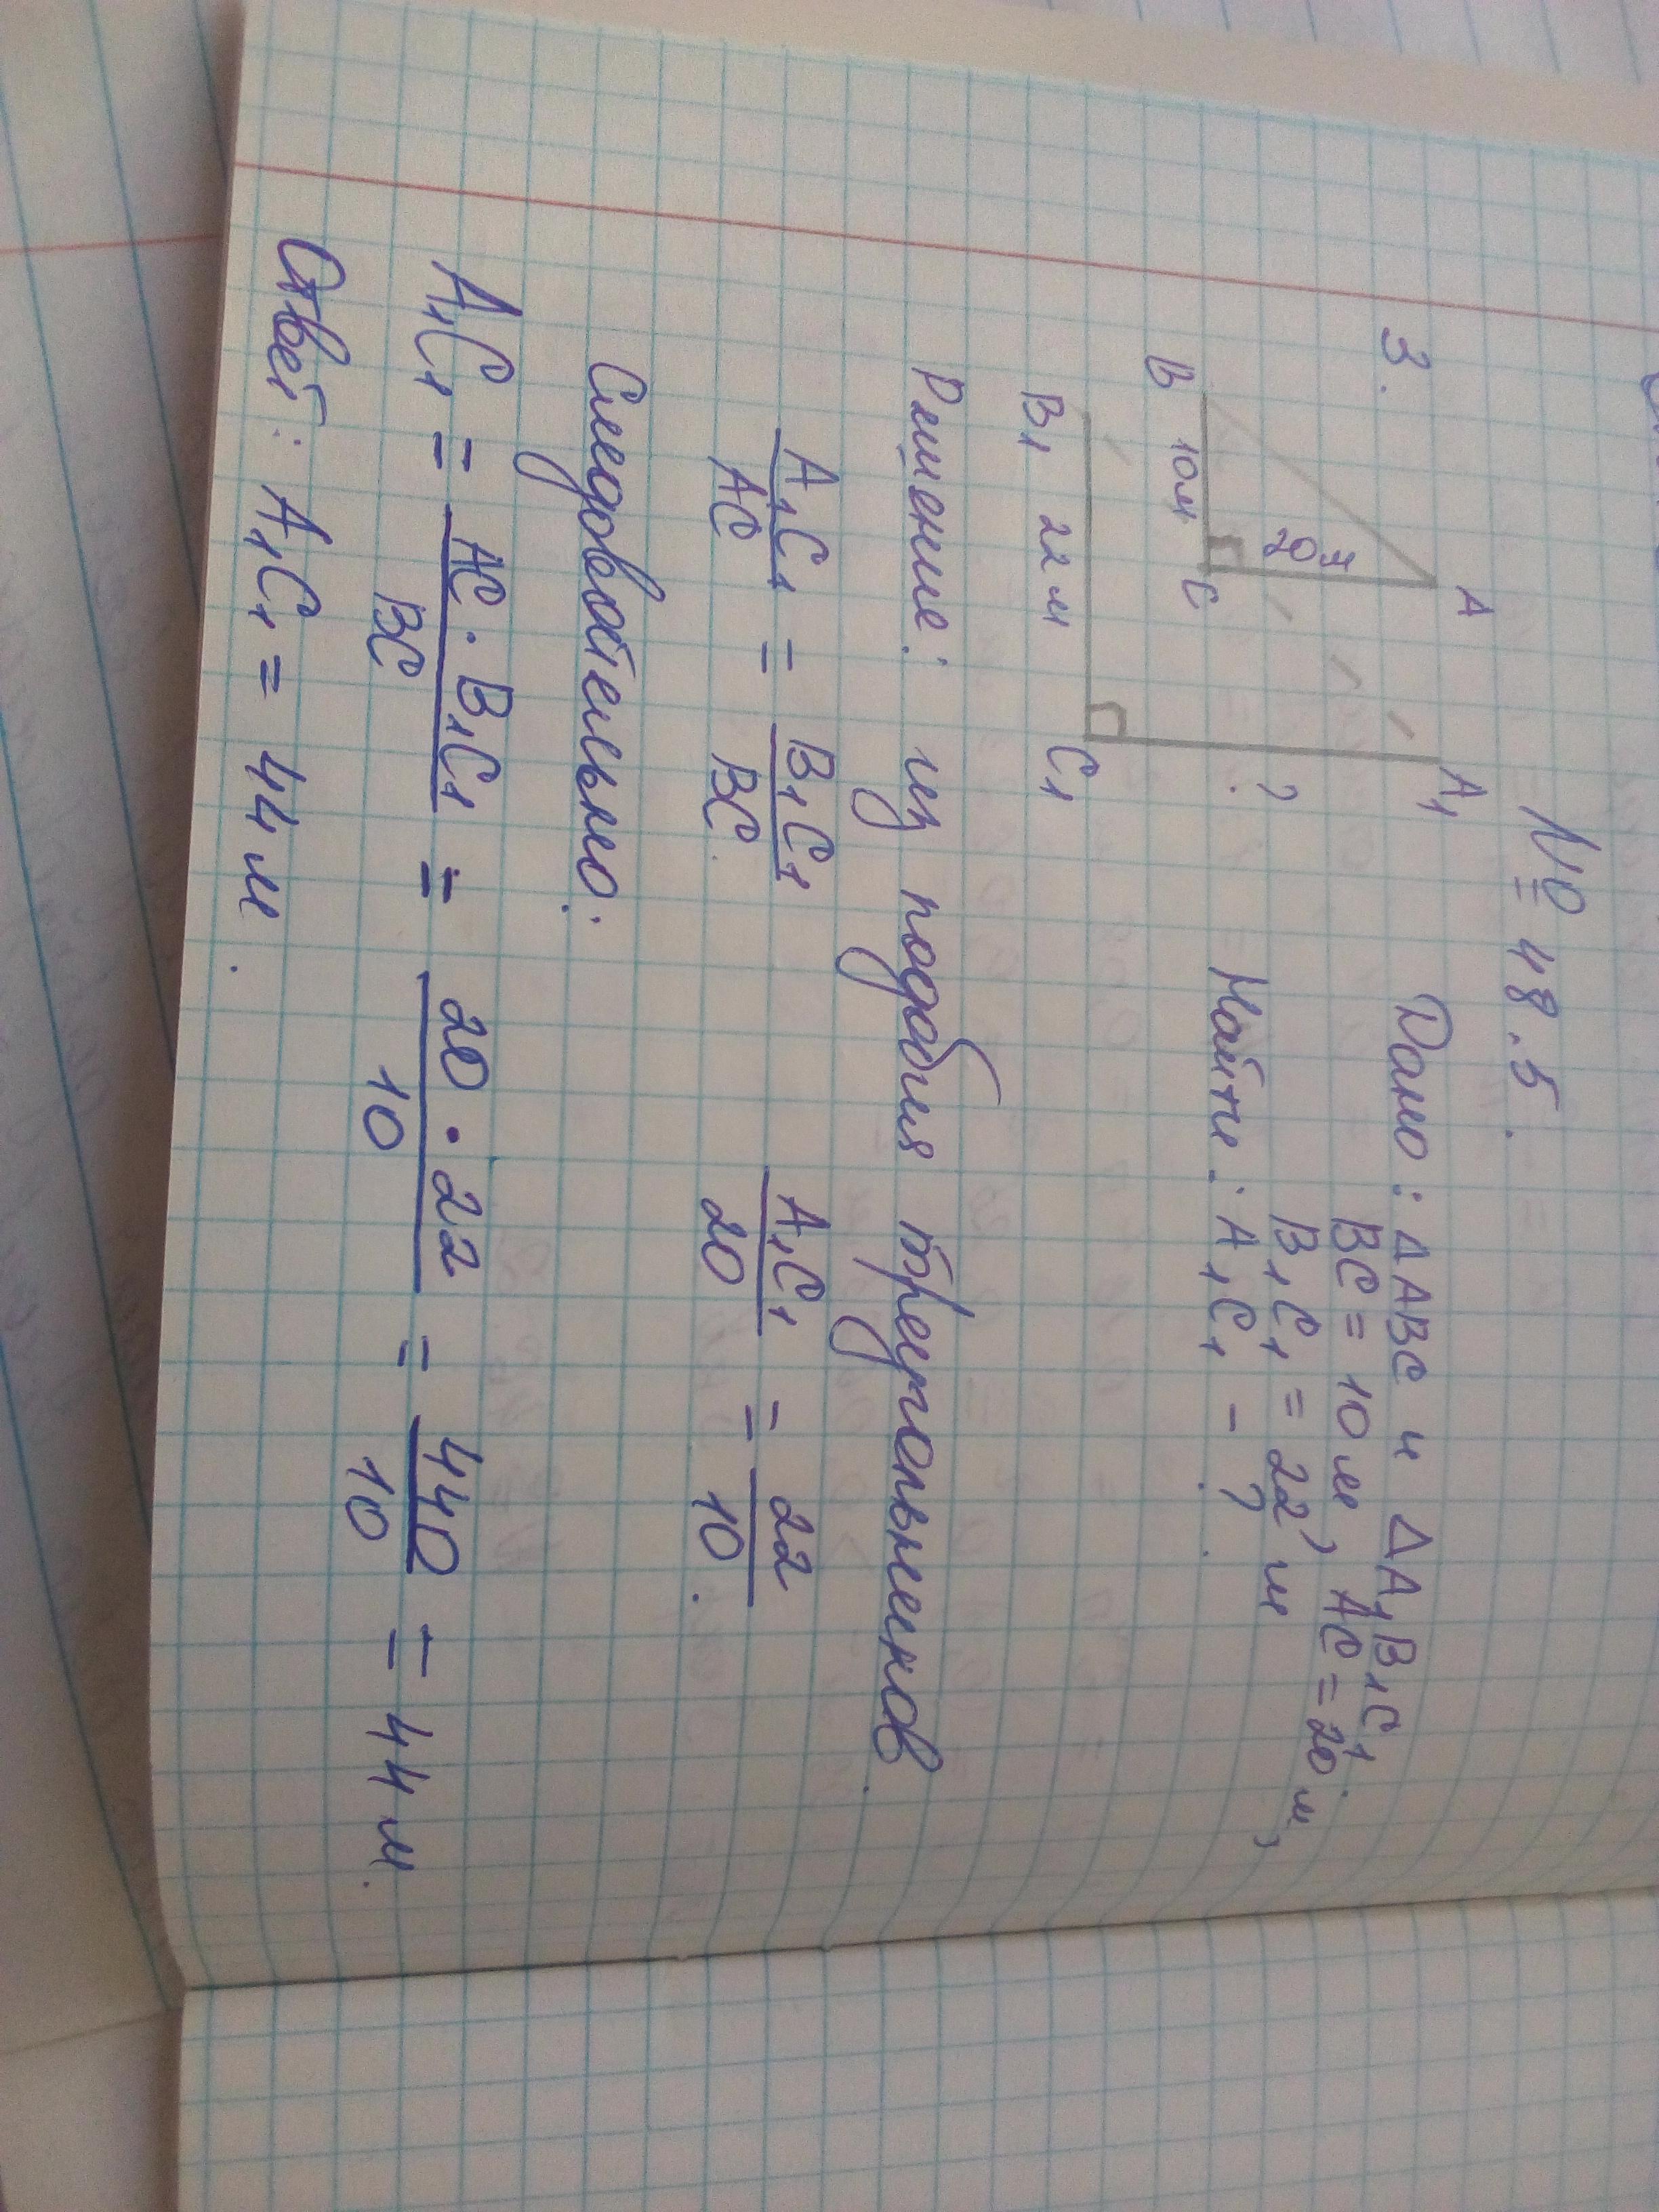 № 48.5.
3.
A
20 м
B 10м C
A₁
?
B₁ 22 м C₁
Дано: ΔABC и ΔA₁B₁C₁.
BC = 10 м, AC = 20 м,
B₁C₁ = 22 м
Найти: A₁C₁ - ?
Решение: из подобия треугольников.
A₁C₁/AC = B₁C₁/BC. A₁C₁/20 = 22/10.
Следовательно:
A₁C₁ = AC · B₁C₁/BC = 20 · 22/10 = 440/10 = 44 м.
Ответ: A₁C₁ = 44 м.